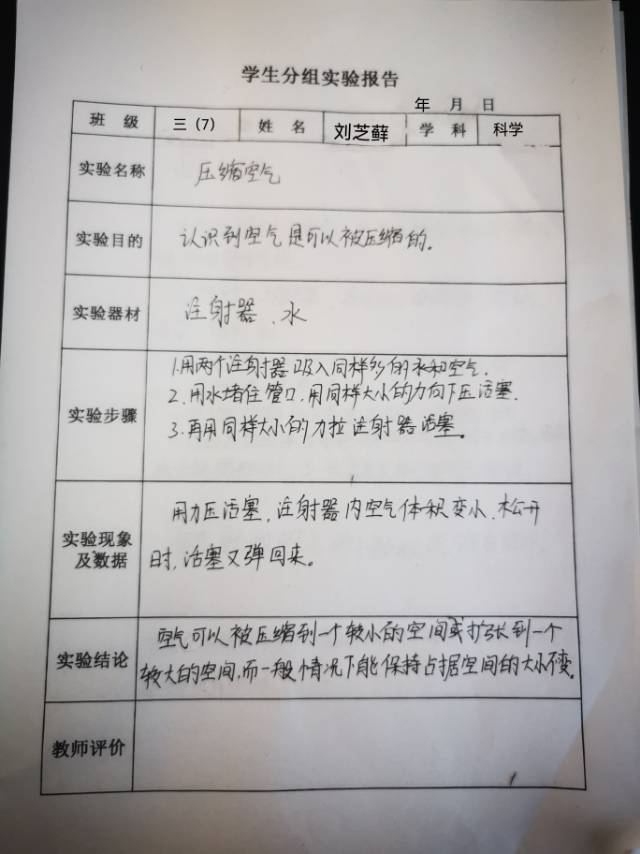 学生分组实验报告
年 月 日
班 级 三(7) 姓 名 刘芝藓 学 科 科学
实验名称 压缩空气
实验目的 认识到空气是可以被压缩的。
实验器材 注射器、水
实验步骤
1.用两个注射器吸入同样多的水和空气.
2.用水堵住管口,用同样大小的力向下压活塞.
3.再用同样大小的力拉注射器活塞。
实验现象
及数据
用力压活塞,注射器内空气体积变小、松开
时,活塞又弹回来。
实验结论
空气可以被压缩到一个较小的空间或扩张到一个
较大的空间,而一般情况下能保持占据空间的大小不变。
教师评价